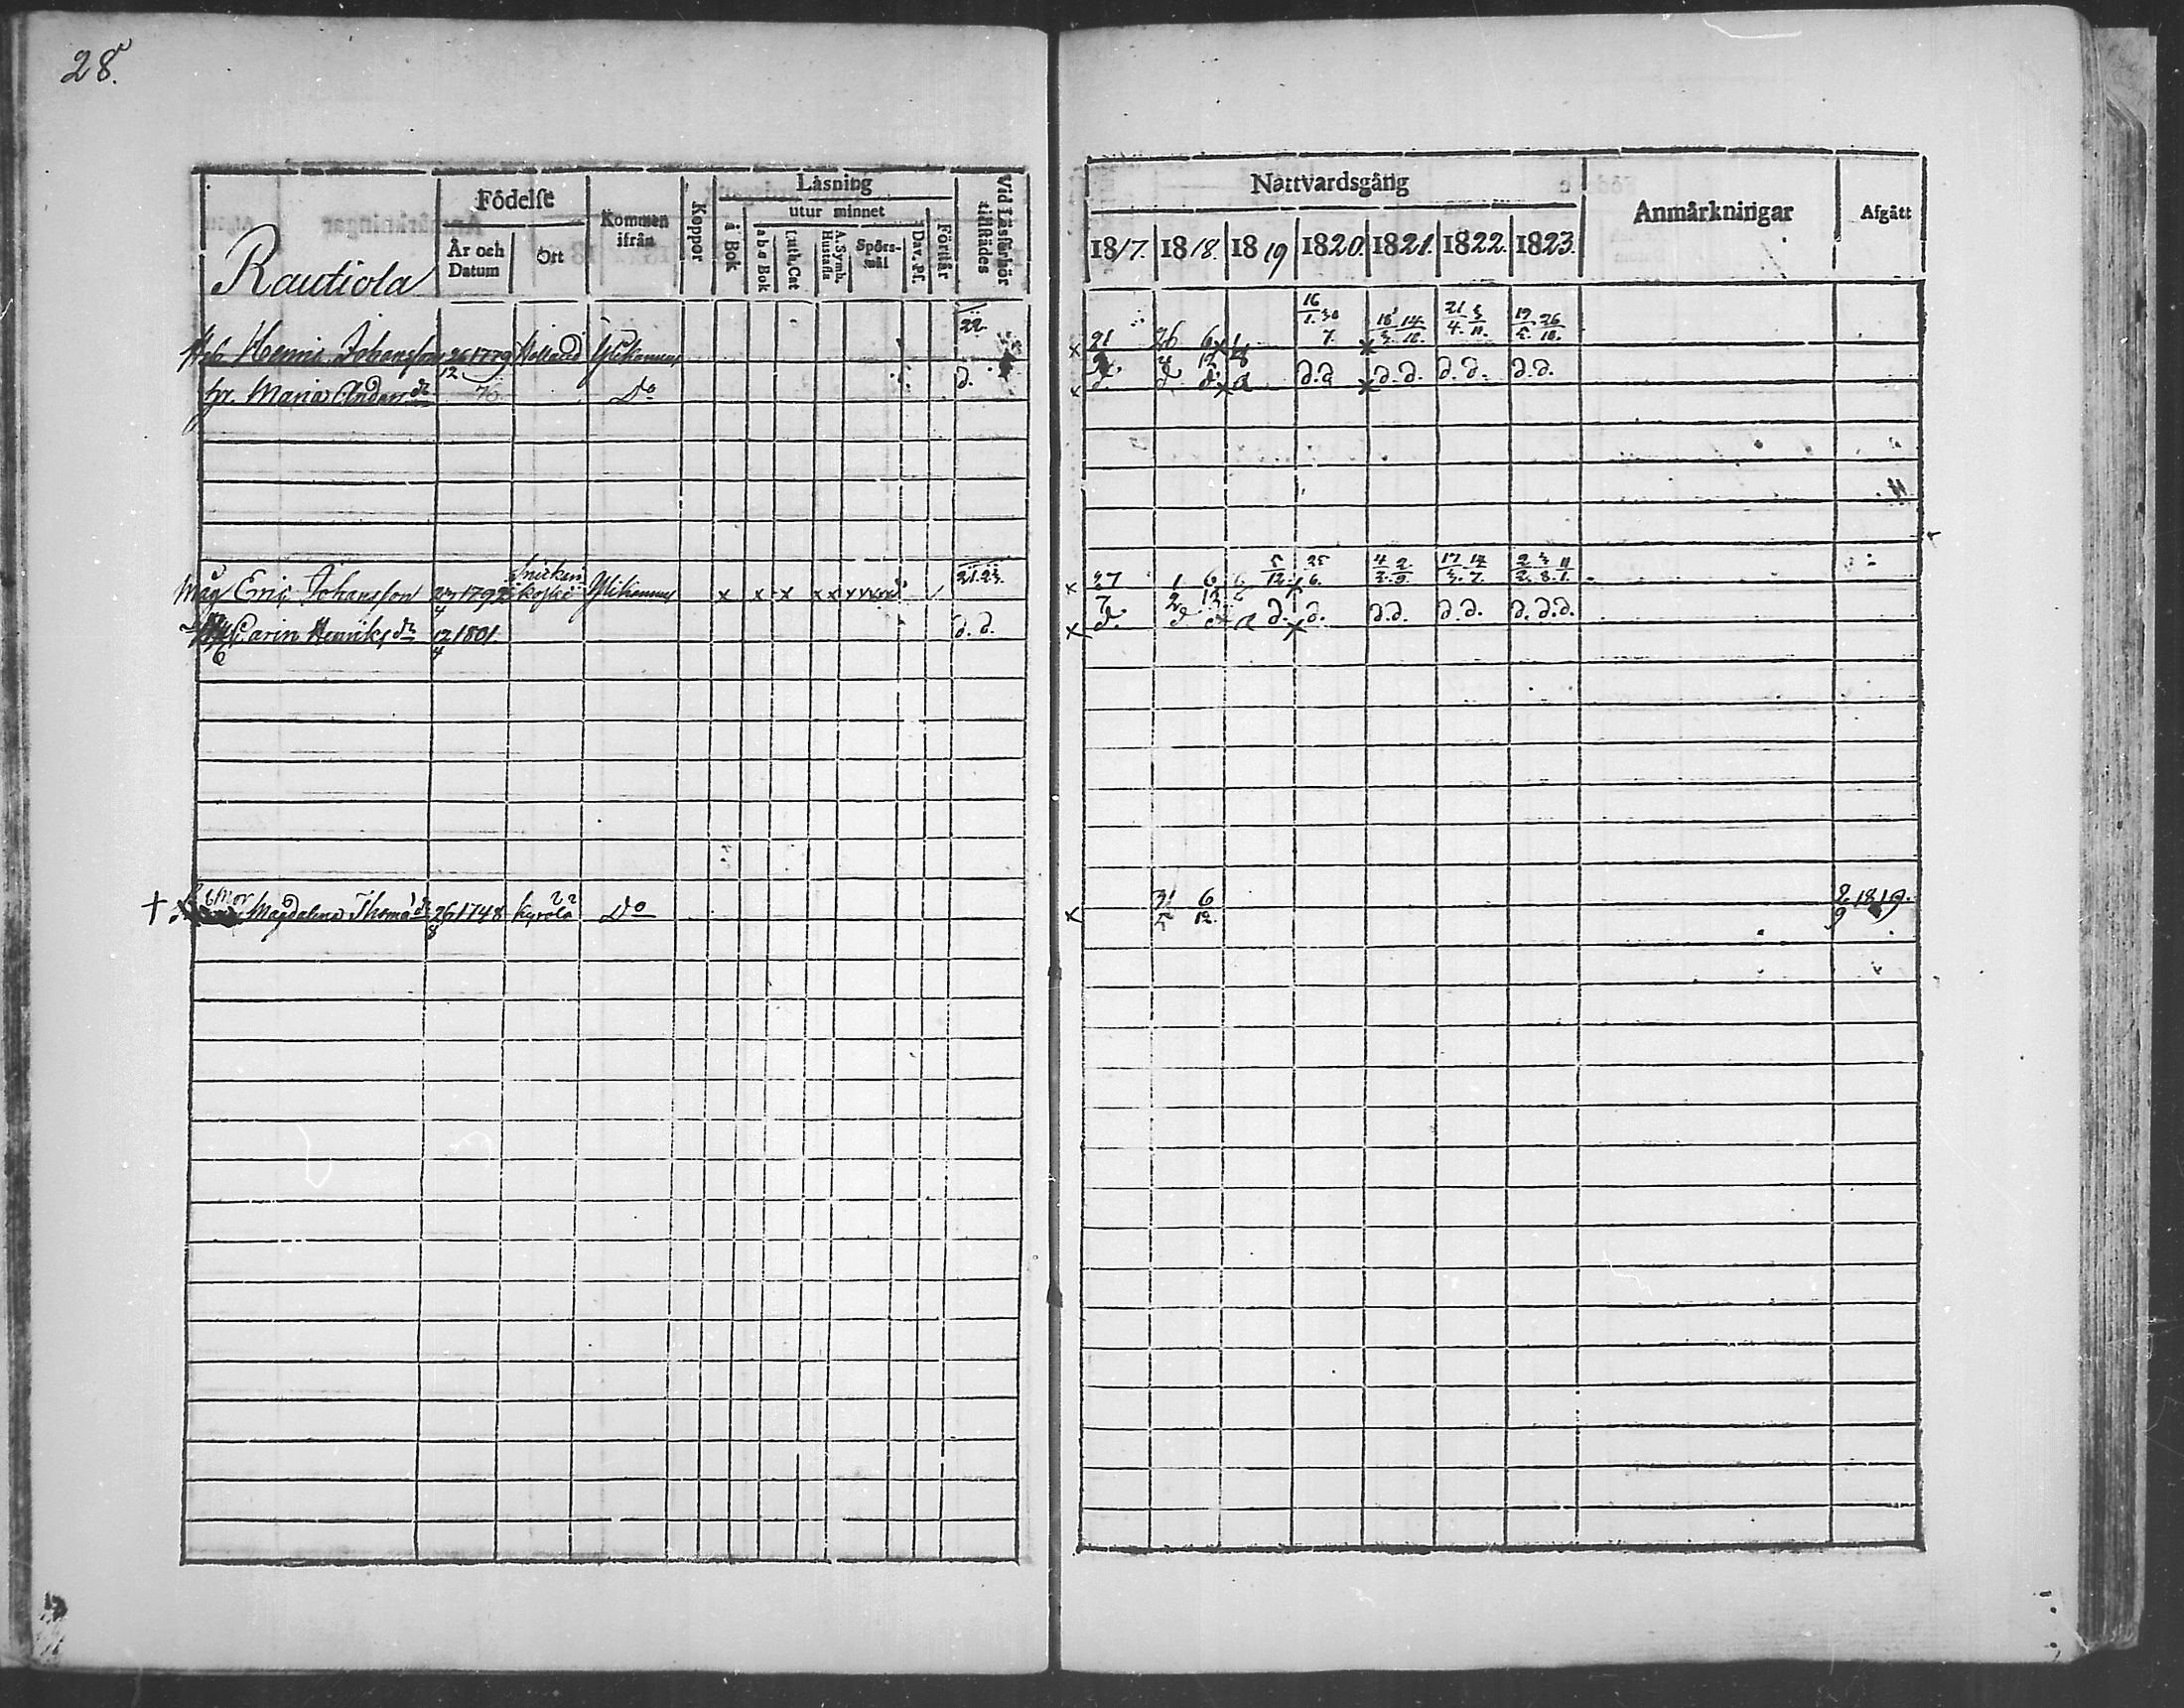 28.
Födelse
Läsning
Vid Läsförhör tillstädes
utur minnet
Kommen ifrån
Koppor
å Bok
a b c Bok
Luth. Cat
A. Symb. Hustafla
Spörs-mål
Dav. Ps.
Förstår
År och Datum
Ort
Rautiola
22
Henric Johansson 26 1779 Ylikannus
12
hr. Maria Anders dr 76 Do d.
21.23.
Måg Eric Johansson 23 1792 koski Ylikannus x x x x x x x x x
4
Carin Henriks dr 12 1801. d. d.
6 4
† Mor Magdalena Thoma dr 26 1748 Kyrolä Do
8
Nattvardsgång
Anmärkningar
Afgått
1817. 1818. 1819 1820. 1821. 1822. 1823.
16/1. 30/7. 18/3. 14/10. 21/4. 3/11. 19/5. 26/10.
x 21 26 6 x x
x d. d. d. x d d.d x d.d. d.d. d.d.
x 27/7 1/2 6/12 5/12 x 25/6. 4/3. 2/9. 17/3. 14/7. 2/2. 3/8. 11/1.
x d. d d. d. x d. d.d. d.d. d.d.d.
x 31/5 6/12 2/9 1819.